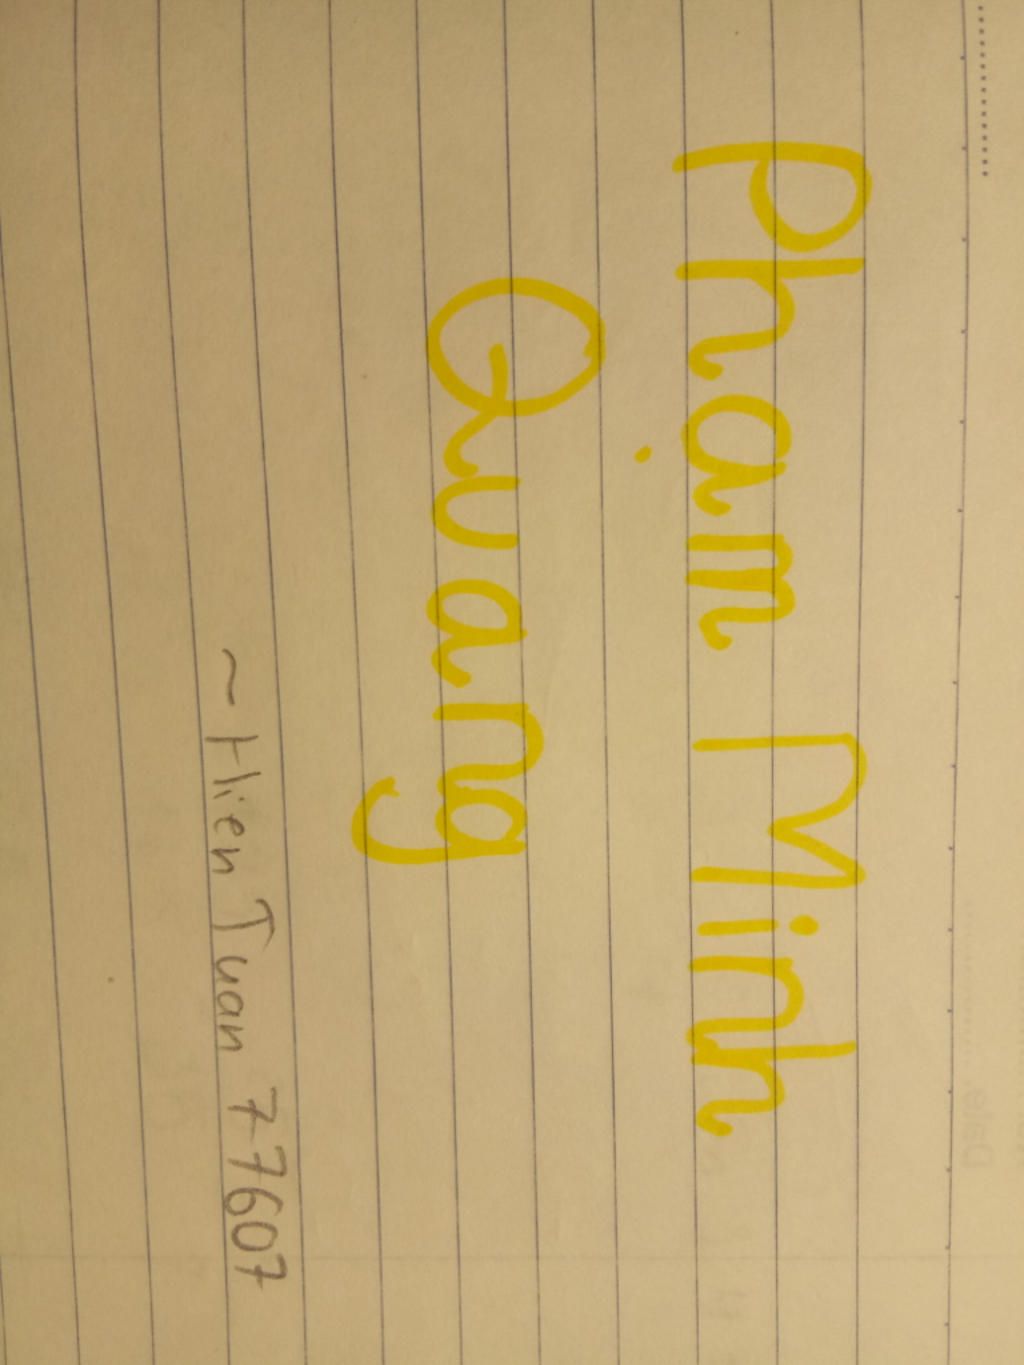 Phạm Minh
Quang
~ Hien Tuan 77607